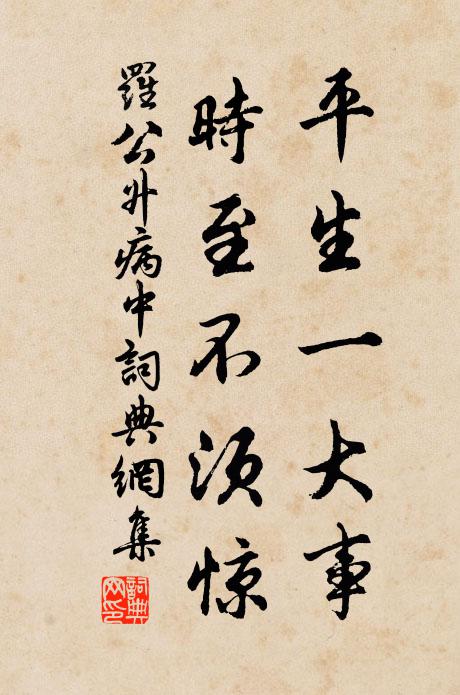 平生一大事
時至不須惊
羅公升病中詞典網集
詞典网印